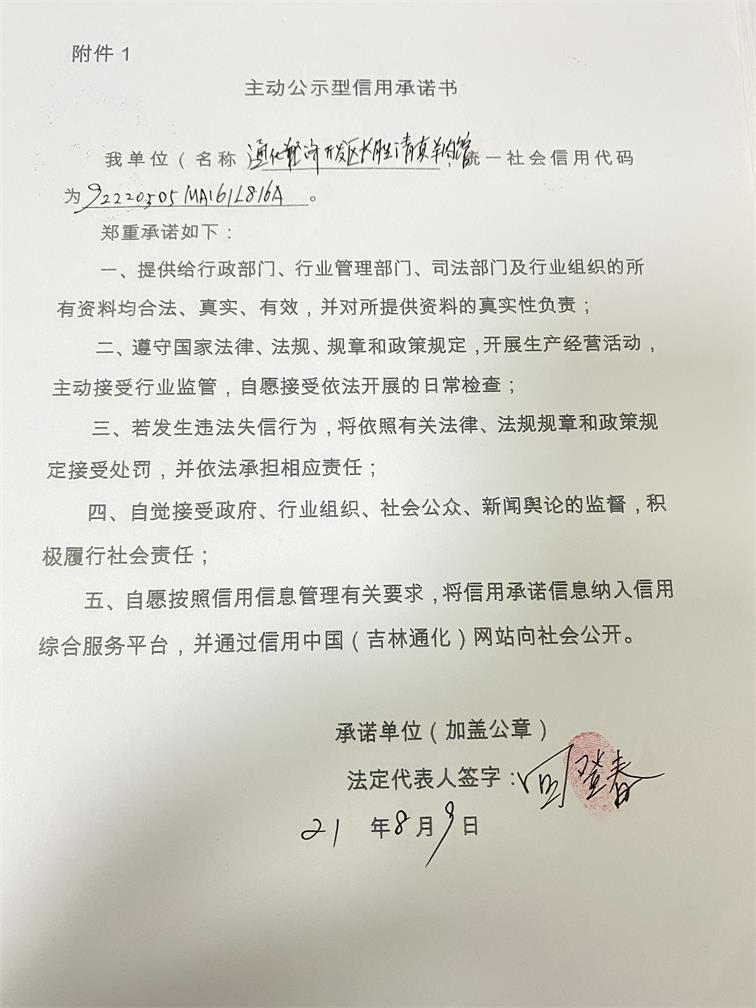 附件 1
主动公示型信用承诺书
我单位（名称）通化经济开发区长胜清真羊肉馆统一社会信用代码
为92220505MA161L816A。
郑重承诺如下：
一、提供给行政部门、行业管理部门、司法部门及行业组织的所
有资料均合法、真实、有效，并对所提供资料的真实性负责；
二、遵守国家法律、法规、规章和政策规定，开展生产经营活动，
主动接受行业监管，自愿接受依法开展的日常检查；
三、若发生违法失信行为，将依照有关法律、法规规章和政策规
定接受处罚，并依法承担相应责任；
四、自觉接受政府、行业组织、社会公众、新闻舆论的监督，积
极履行社会责任；
五、自愿按照信用信息管理有关要求，将信用承诺信息纳入信用
综合服务平台，并通过信用中国（吉林通化）网站向社会公开。
承诺单位（加盖公章）
法定代表人签字：登春
21 年 8 月 9 日